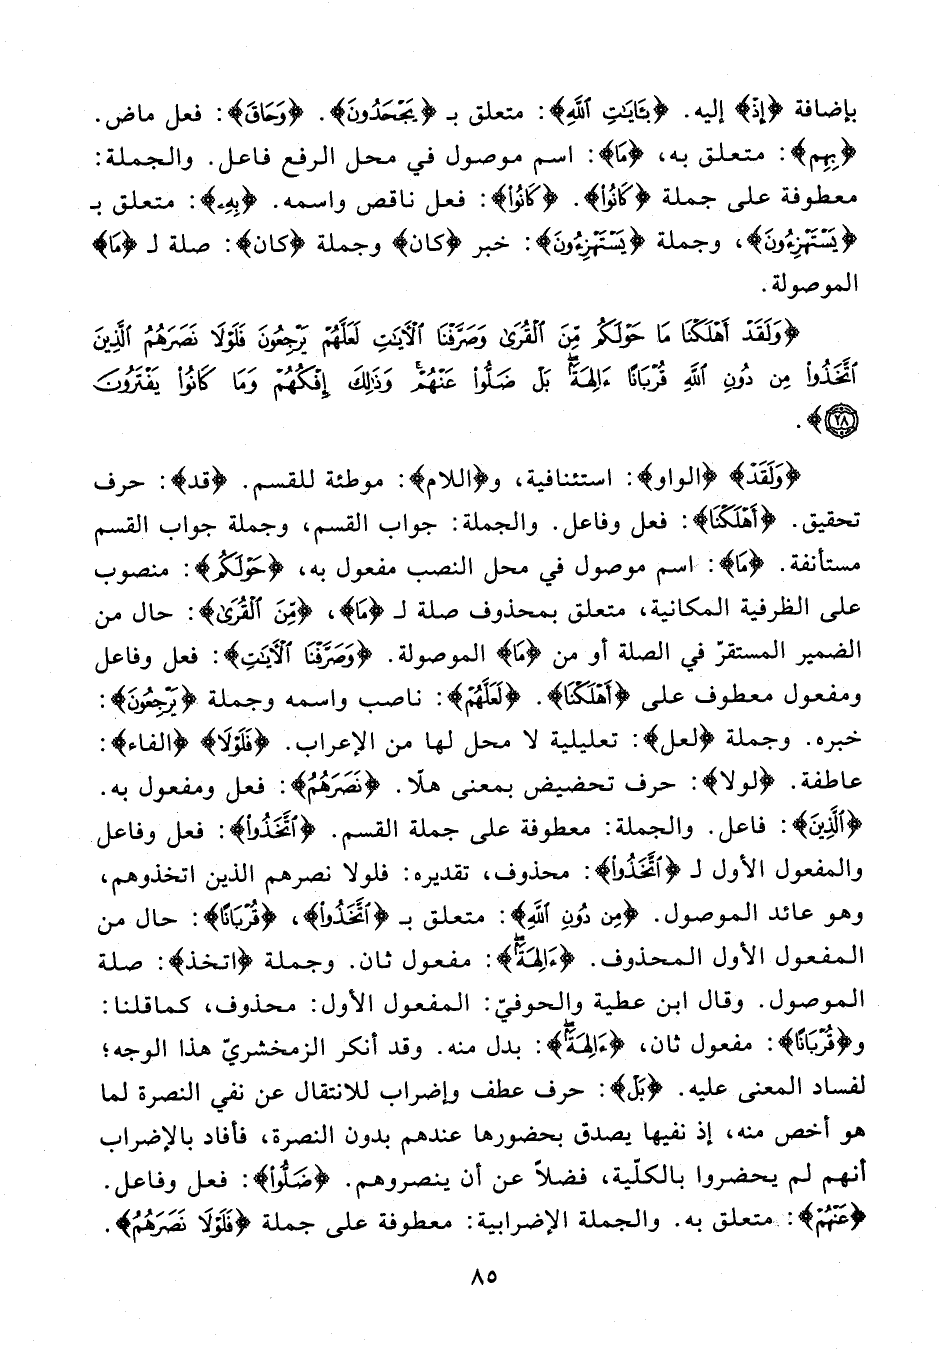 بإضافة ﴿إِذْ﴾ إليه. ﴿بِـَٔايَٰتِ ٱللَّهِ﴾: متعلق بـ ﴿يَجْحَدُونَ﴾. ﴿وَحَاقَ﴾: فعل ماض.
﴿بِهِم﴾: متعلق به، ﴿مَا﴾: اسم موصول في محل الرفع فاعل. والجملة:
معطوفة على جملة ﴿كَانُوا۟﴾. ﴿كَانُوا۟﴾: فعل ناقص واسمه. ﴿بِهِۦ﴾: متعلق بـ
﴿يَسْتَهْزِءُونَ﴾، وجملة ﴿يَسْتَهْزِءُونَ﴾: خبر ﴿كان﴾ وجملة ﴿كان﴾: صلة لـ ﴿مَا﴾
الموصولة.
﴿وَلَقَدْ أَهْلَكْنَا مَا حَوْلَكُم مِّنَ ٱلْقُرَىٰ وَصَرَّفْنَا ٱلْـَٔايَٰتِ لَعَلَّهُمْ يَرْجِعُونَ فَلَوْلَا نَصَرَهُمُ ٱلَّذِينَ
ٱتَّخَذُوا۟ مِن دُونِ ٱللَّهِ قُرْبَانًا ءَالِهَةًۢ ۖ بَلْ ضَلُّوا۟ عَنْهُمْ ۚ وَذَٰلِكَ إِفْكُهُمْ وَمَا كَانُوا۟ يَفْتَرُونَ
٢٨﴾.
﴿وَلَقَدْ﴾ ﴿الواو﴾: استئنافية، و﴿اللام﴾: موطئة للقسم. ﴿قد﴾: حرف
تحقيق. ﴿أَهْلَكْنَا﴾: فعل وفاعل. والجملة: جواب القسم، وجملة جواب القسم
مستأنفة. ﴿مَا﴾: اسم موصول في محل النصب مفعول به، ﴿حَوْلَكُم﴾: منصوب
على الظرفية المكانية، متعلق بمحذوف صلة لـ ﴿مَا﴾، ﴿مِّنَ ٱلْقُرَىٰ﴾: حال من
الضمير المستقرّ في الصلة أو من ﴿مَا﴾ الموصولة. ﴿وَصَرَّفْنَا ٱلْـَٔايَٰتِ﴾: فعل وفاعل
ومفعول معطوف على ﴿أَهْلَكْنَا﴾. ﴿لَعَلَّهُمْ﴾: ناصب واسمه وجملة ﴿يَرْجِعُونَ﴾:
خبره. وجملة ﴿لعل﴾: تعليلية لا محل لها من الإعراب. ﴿فَلَوْلَا﴾ ﴿الفاء﴾:
عاطفة. ﴿لولا﴾: حرف تحضيض بمعنى هلّا. ﴿نَصَرَهُمُ﴾: فعل ومفعول به.
﴿ٱلَّذِينَ﴾: فاعل. والجملة: معطوفة على جملة القسم. ﴿ٱتَّخَذُوا۟﴾: فعل وفاعل
والمفعول الأول لـ ﴿ٱتَّخَذُوا۟﴾: محذوف، تقديره: فلولا نصرهم الذين اتخذوهم،
وهو عائد الموصول. ﴿مِن دُونِ ٱللَّهِ﴾: متعلق بـ ﴿ٱتَّخَذُوا۟﴾، ﴿قُرْبَانًا﴾: حال من
المفعول الأول المحذوف. ﴿ءَالِهَةًۢ ۖ﴾: مفعول ثان. وجملة ﴿اتخذ﴾: صلة
الموصول. وقال ابن عطية والحوفيّ: المفعول الأول: محذوف، كماقلنا:
و﴿قُرْبَانًا﴾: مفعول ثان، ﴿ءَالِهَةًۢ ۖ﴾: بدل منه. وقد أنكر الزمخشريّ هذا الوجه؛
لفساد المعنى عليه. ﴿بَلْ﴾: حرف عطف وإضراب للانتقال عن نفي النصرة لما
هو أخص منه، إذ نفيها يصدق بحضورها عندهم بدون النصرة، فأفاد بالإضراب
أنهم لم يحضروا بالكلّية، فضلاً عن أن ينصروهم. ﴿ضَلُّوا۟﴾: فعل وفاعل.
﴿عَنْهُمْ﴾: متعلق به. والجملة الإضرابية: معطوفة على جملة ﴿فَلَوْلَا نَصَرَهُمُ﴾.
٨٥